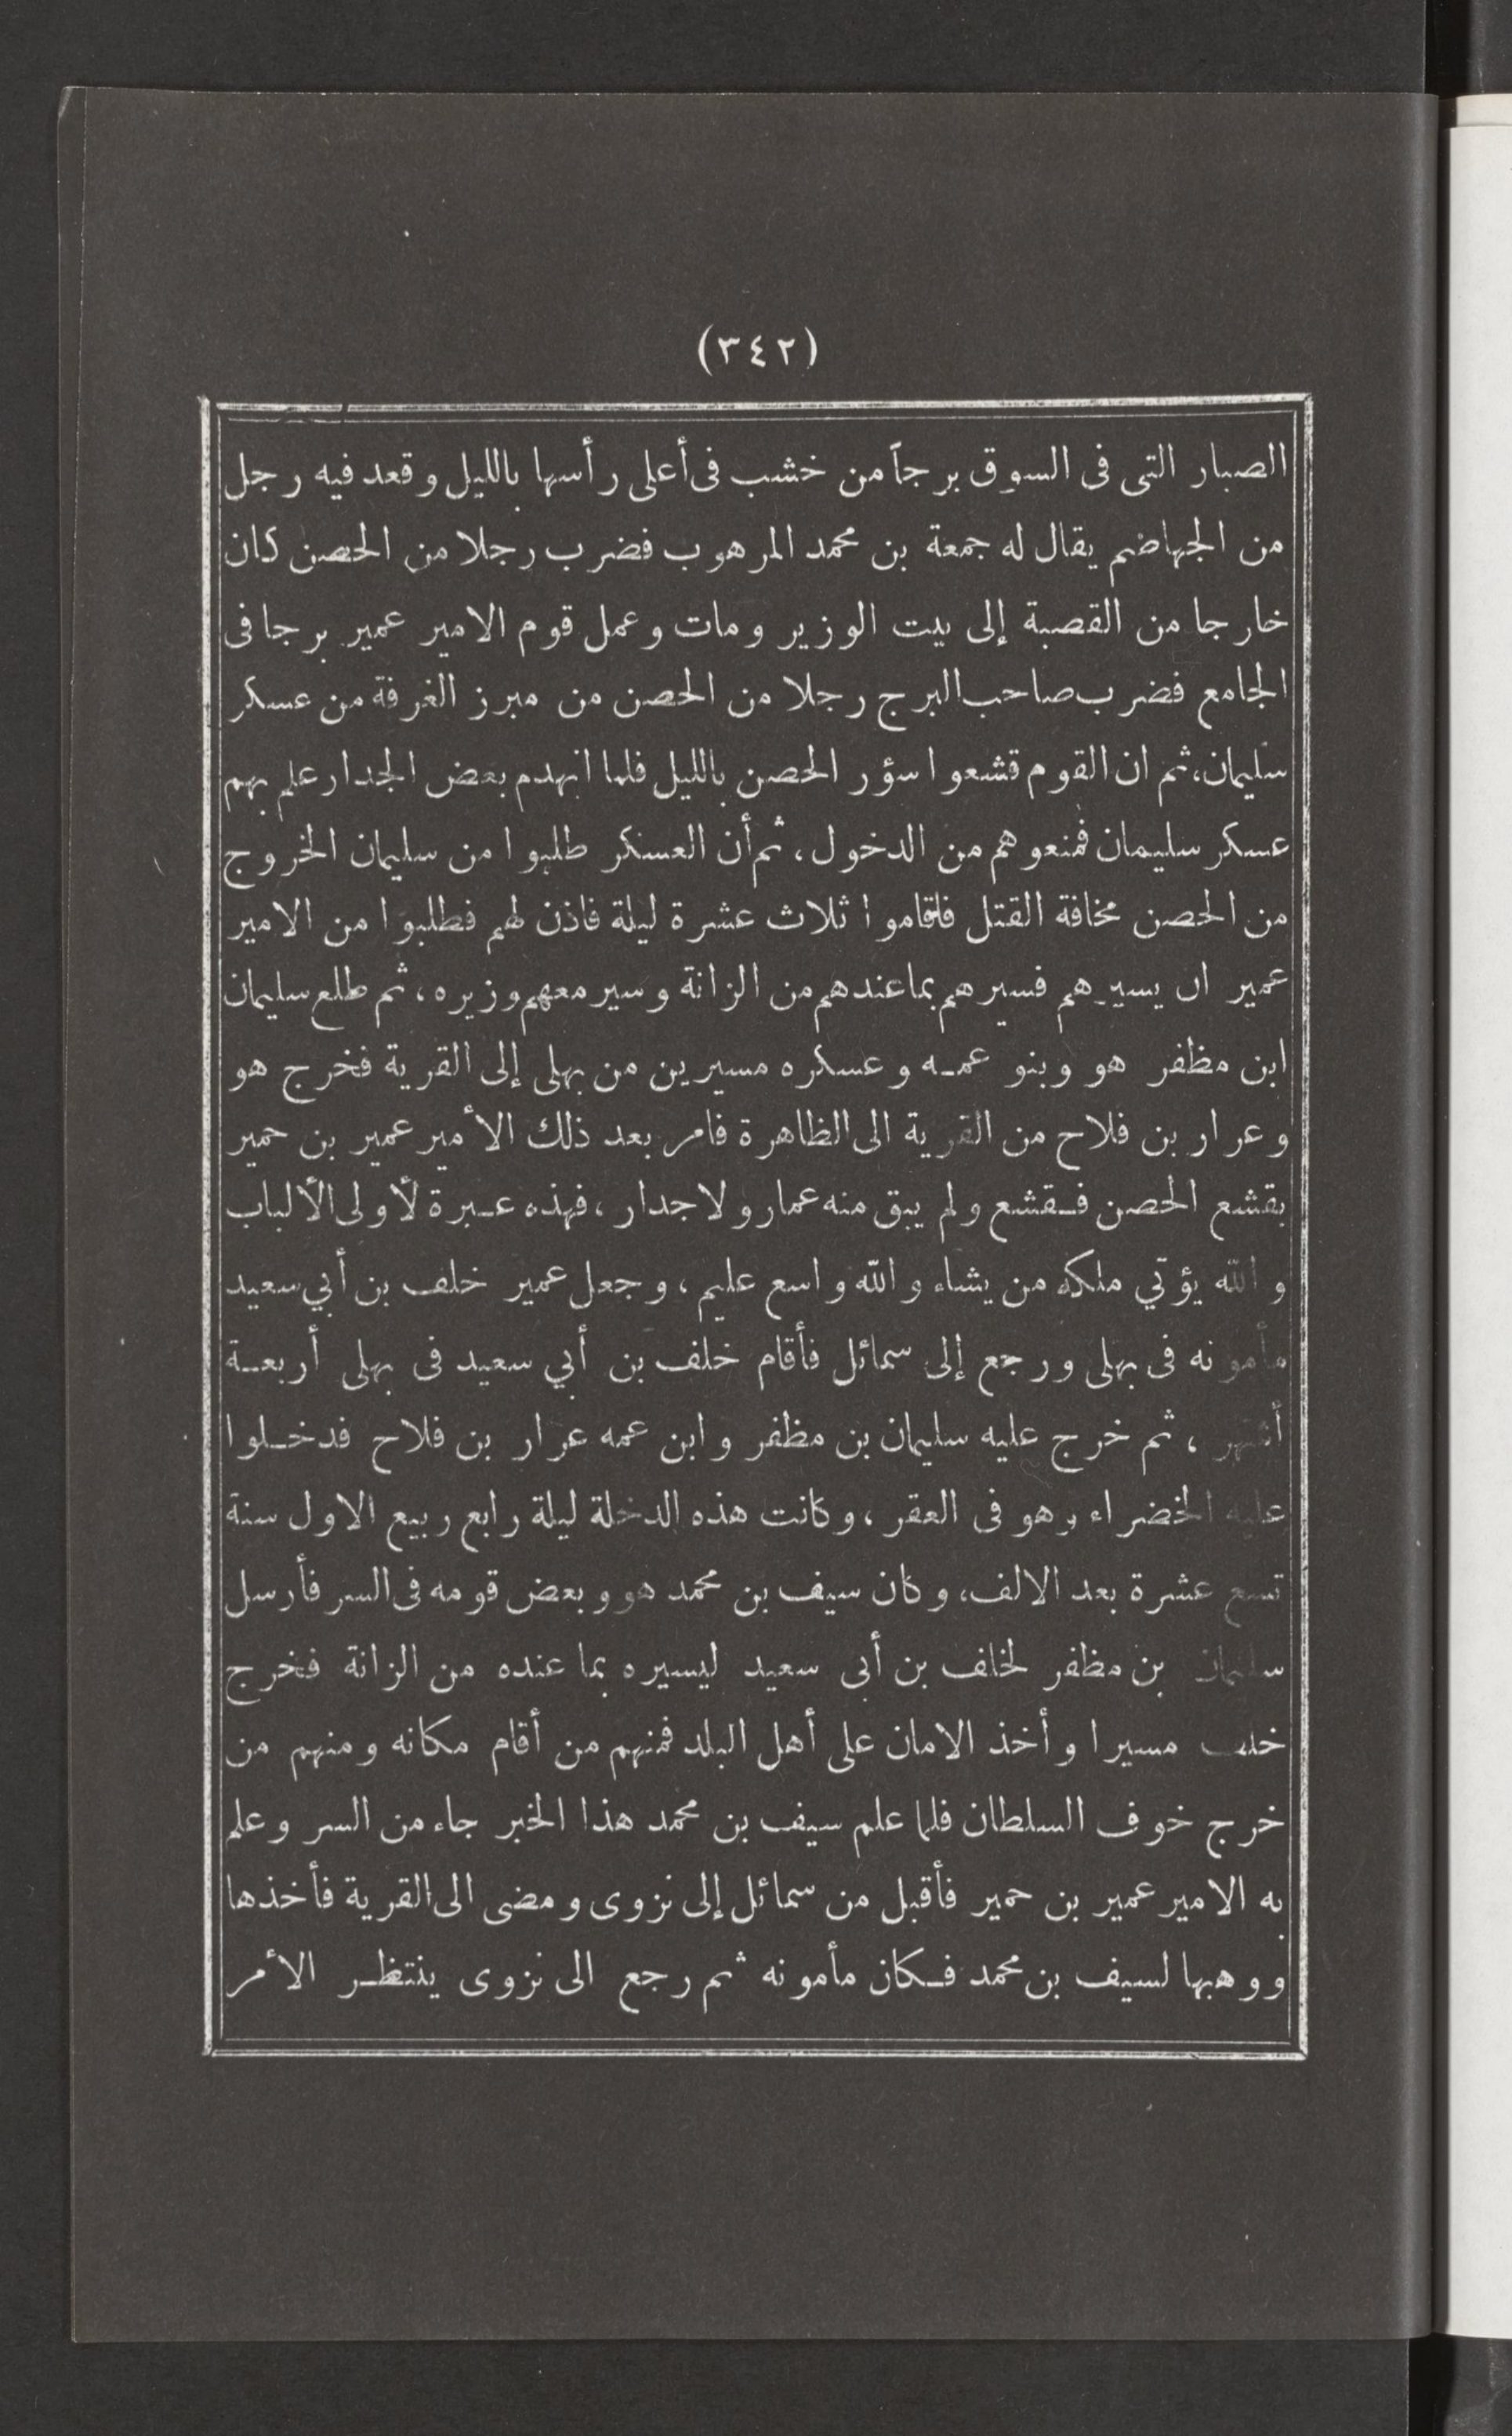 (٣٤٢)
الصبار التى فى السوق برجاً من خشب فى أعلى رأسها بالليل وقعد فيه رجل
من الجهاضم يقال له جمعة بن محمد المرهوب فضرب رجلا من الحصن كان
خارجا من القصبة إلى بيت الوزير ومات وعمل قوم الامير عمير برجا فى
الجامع فضرب صاحب البرج رجلا من الحصن من مبرز الغرفة من عسكر
سليمان، ثم ان القوم قشعوا سؤر الحصن بالليل فلما انهدم بعض الجدار علم بهم
عسكر سليمان فمنعوهم من الدخول، ثم أن العسكر طلبوا من سليمان الخروج
من الحصن مخافة القتل فاقاموا ثلاث عشرة ليلة فاذن لهم فطلبوا من الامير
عمير ان يسيرهم فسيرهم بما عندهم من الزانة وسير معهم وزيره، ثم طلع سليمان
ابن مظفر هو وبنو عمه وعسكره مسيرين من بهلى إلى القرية فخرج هو
وعرار بن فلاح من القرية الى الظاهرة فامر بعد ذلك الأمير عمير بن حمير
بقشع الحصن فقشع ولم يبق منه عمار ولا جدار، فهذه عبرة لأولى الألباب
والله يؤتي ملكه من يشاء والله واسع عليم، وجعل عمير خلف بن أبي سعيد
مأمونه فى بهلى ورجع إلى سمائل فأقام خلف بن أبي سعيد فى بهلى أربعة
أشهر، ثم خرج عليه سليمان بن مظفر وابن عمه عرار بن فلاح فدخلوا
عليه الخضراء وهو فى العقر، وكانت هذه الدخلة ليلة رابع ربيع الاول سنة
تسع عشرة بعد الالف، وكان سيف بن محمد هو وبعض قومه فى السر فأرسل
سليمان بن مظفر لخلف بن أبى سعيد ليسيره بما عنده من الزانة فخرج
خلف مسيرا وأخذ الامان على أهل البلد فمنهم من أقام مكانه ومنهم من
خرج خوف السلطان فلما علم سيف بن محمد هذا الخبر جاء من السر وعلم
به الامير عمير بن حمير فأقبل من سمائل إلى نزوى ومضى الى القرية فأخذها
ووهبها لسيف بن محمد فكان مأمونه ثم رجع الى نزوى ينتظر الأمر